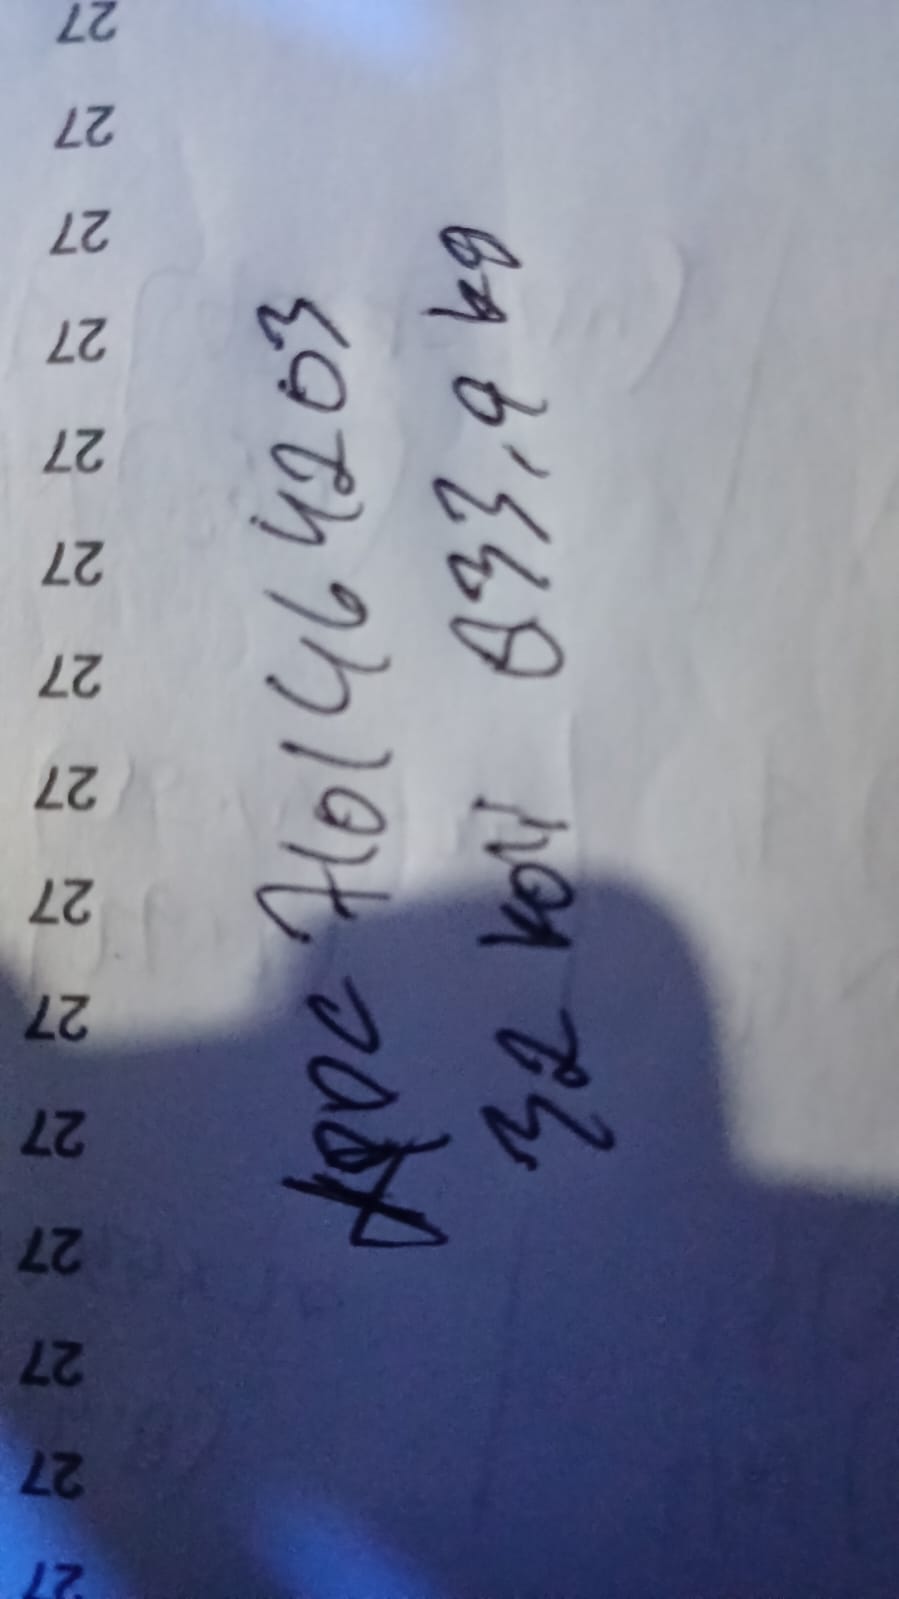 27
27
27
27
27
27
27
27
27
27
27
27
27
27
27
7101464203
32 кол 833,9 kg